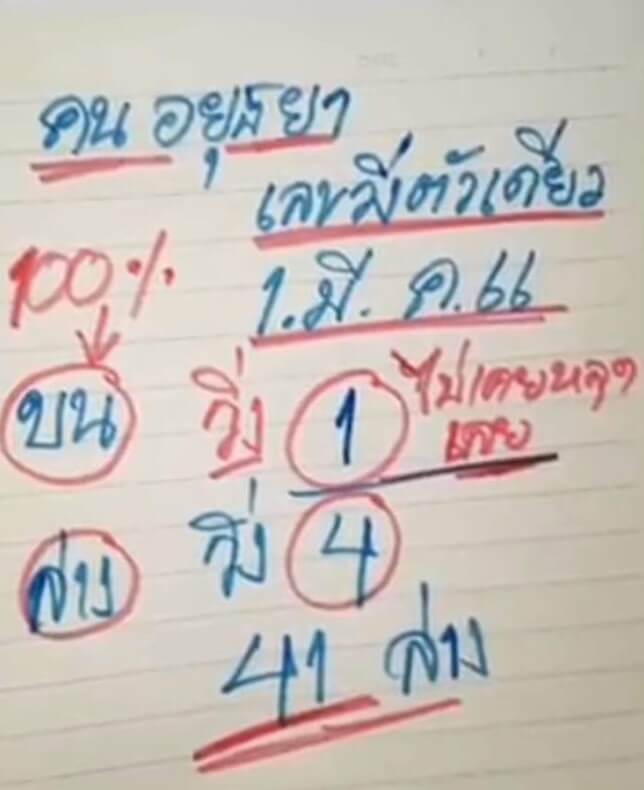 คน อยุธยา
เลขมีตัวเดียว
100%
1.มี. ค.66
บน วิ่ง 1 ไม่เคยหลุด
เลย
ล่าง วิ่ง 4
41 ล่าง